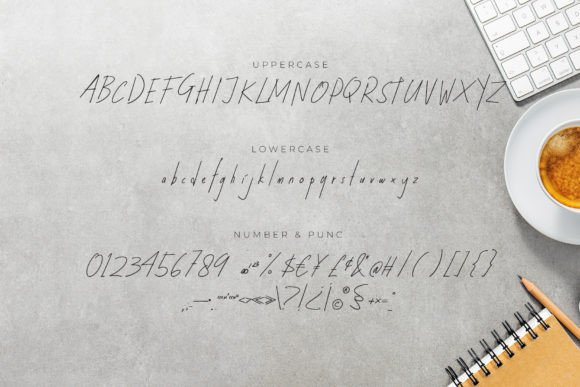 UPPERCASE
ABCDEFGHIJKLMNOPQRSTUVWXYZ
LOWERCASE
abcdefghijklmnopqrstuvwxyz
NUMBER & PUNC
0123456789 % $ € ¥ £ ¢ & @ # / ( ) [ ] { }
\ ? ! ¿ ¡ | © ® § + × ÷ =